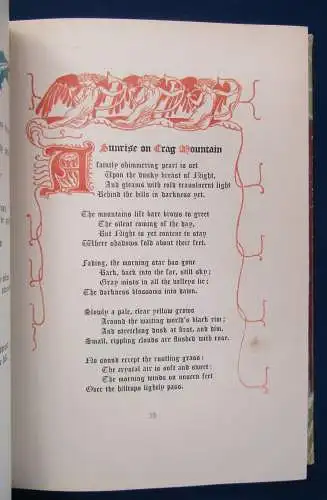 Sunrise on Crag Mountain
A faintly shimmering pearl is set
Upon the dusky breast of Night,
And gleams with cold translucent light
Behind the hills in darkness yet.
The mountains lift bare brows to greet
The silent coming of the day,
But Night is yet content to stay
Where shadows fold about their feet.
Fading, the morning star has gone
Back, back into the far, still sky;
Gray mists in all the valleys lie;
The darkness blossoms into dawn.
Slowly a pale, clear yellow grows
Around the waiting world's black rim;
And stretching dusk at first, and dim,
Small, rippling clouds are flushed with rose.
No sound except the rustling grass;
The crystal air is soft and sweet;
The morning winds on unseen feet
Over the hilltops lightly pass.